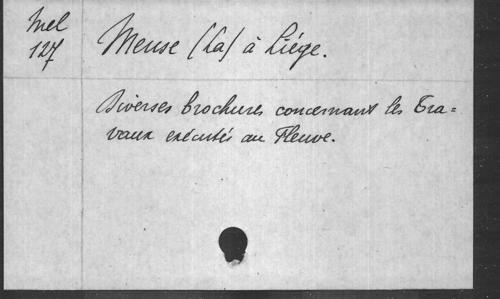 Mel
127
Meuse (La) à Liége.
Diverses brochures concernant les Tra=
vaux exécutés au Fleuve.